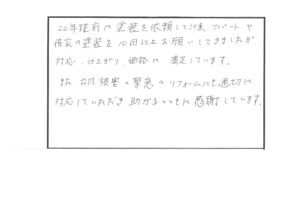 20年程前に塗装を依頼して以来 アパートや
借家の塗装を10回以上お願いしてきましたが
対応、仕上がり、価格に満足しています。
又、台風被害の緊急のリフォームにも適切に
対応していただき助かるとともに感謝しています。